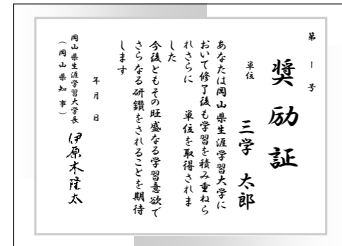 第　１　号
奨励証
三学　太郎
単位
あなたは岡山県生涯学習大学に
おいて修了後も学習を積み重ねら
れさらに　　単位を取得されま
した
今後ともその旺盛なる学習意欲で
さらなる研鑽をされることを期待
します
年　月　日
岡山県生涯学習大学長
（岡山県知事）
伊原木隆太